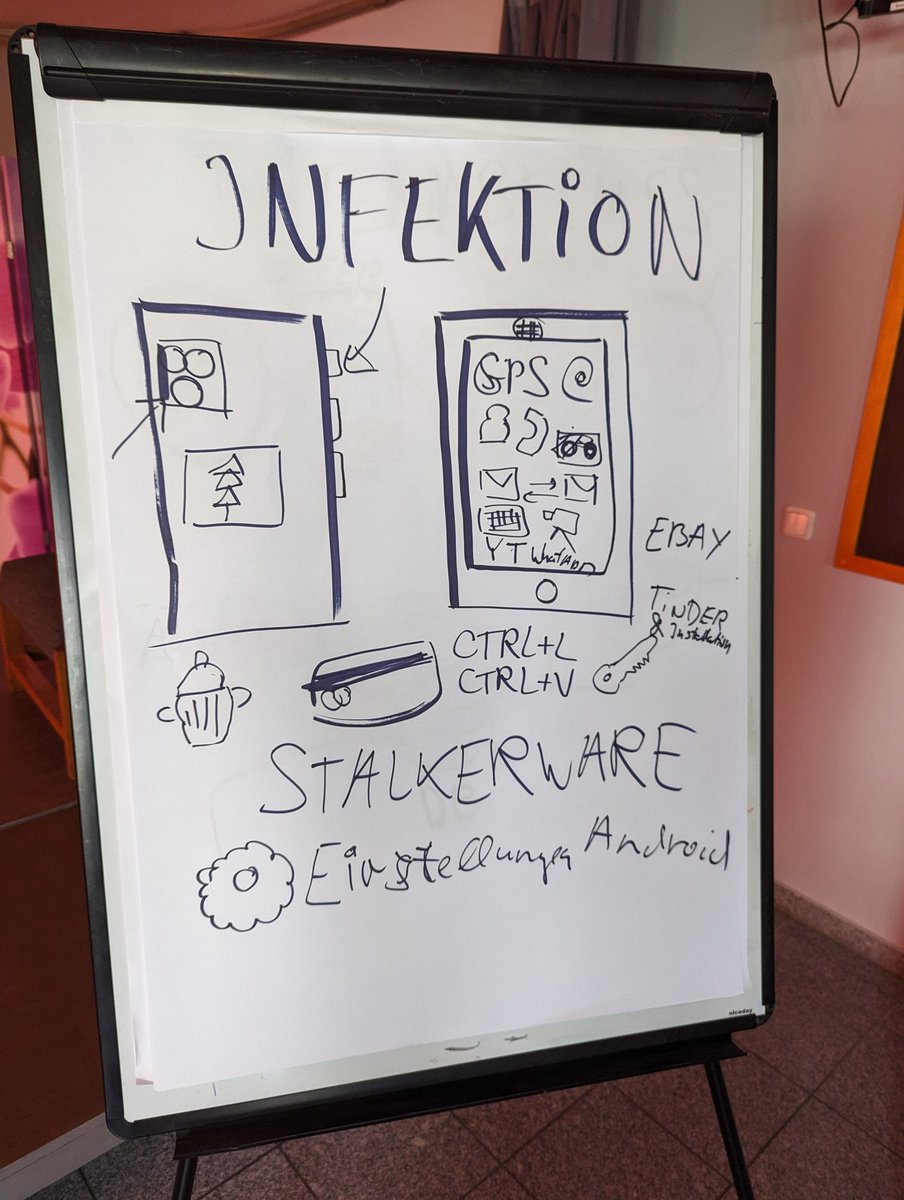 INFEKTiON
GPS @
YT WhatsApp
EBAY
TiNDER
Installation
CTRL+L
CTRL+V
STALKERWARE
Einstellungen Android
nicoday